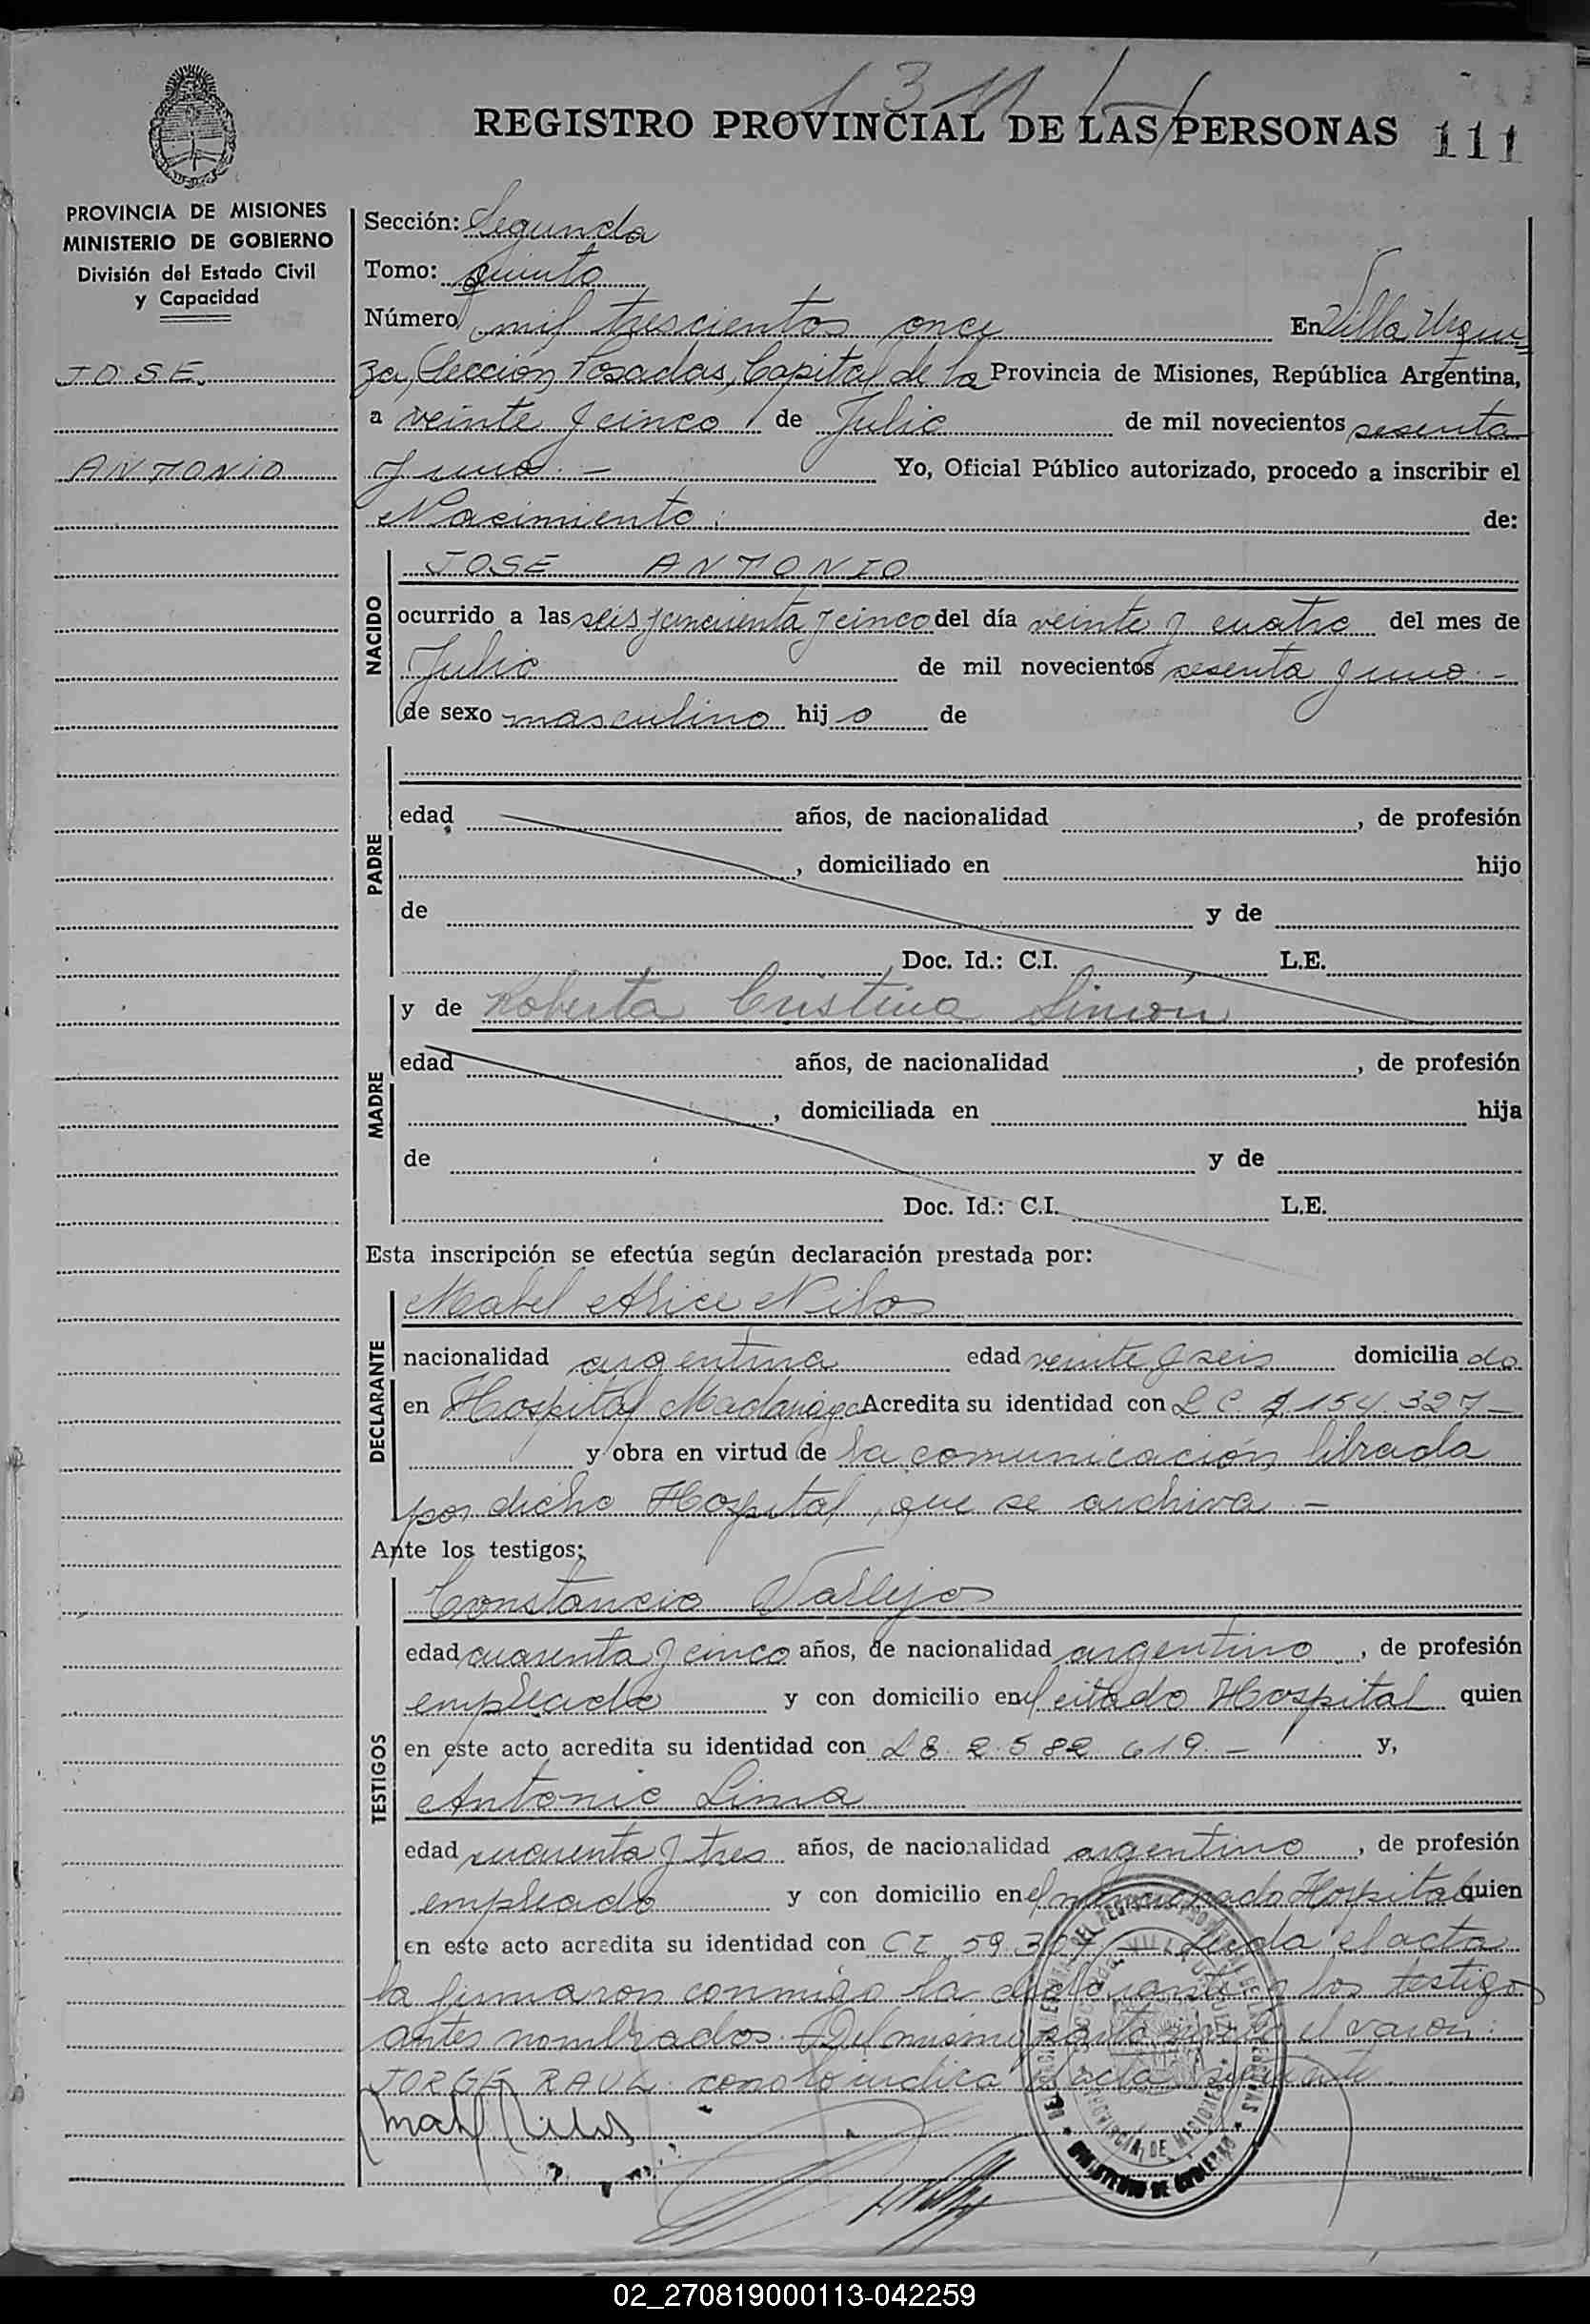 1311
REGISTRO PROVINCIAL DE LAS PERSONAS 111
PROVINCIA DE MISIONES
MINISTERIO DE GOBIERNO
División del Estado Civil
y Capacidad
JOSE
ANTONIO
Sección: Segunda
Tomo: quinto
Número mil trescientos once En Villa Urqui=
za, Sección Posadas, Capital de la Provincia de Misiones, República Argentina,
a veinte y cinco de Julio de mil novecientos sesenta
y uno.- Yo, Oficial Público autorizado, procedo a inscribir el
Nacimiento: de:
NACIDO
JOSE ANTONIO
ocurrido a las seis y cincuenta y cinco del día veinte y cuatro del mes de
Julio de mil novecientos sesenta y uno.-
de sexo masculino hijo de
PADRE
edad años, de nacionalidad , de profesión
, domiciliado en hijo
de y de
Doc. Id.: C.I. L.E.
y de Roberta Cristina Simón
MADRE
edad años, de nacionalidad , de profesión
, domiciliada en hija
de y de
Doc. Id.: C.I. L.E.
Esta inscripción se efectúa según declaración prestada por:
DECLARANTE
Mabel Alice Nilos
nacionalidad argentina edad veinte y seis domiciliado
en Hospital Madariaga Acredita su identidad con L C 154.327-
y obra en virtud de la comunicación librada
por dicho Hospital, que se archiva.-
Ante los testigos:
TESTIGOS
Constancio Vallejos
edad cuarenta y cinco años, de nacionalidad argentino, de profesión
empleado y con domicilio en el citado Hospital quien
en este acto acredita su identidad con LE. 2.582.619.- y,
Antonio Lima
edad cuarenta y tres años, de nacionalidad argentino, de profesión
empleado y con domicilio en el mencionado Hospital quien
en este acto acredita su identidad con CI 59.307.- Leida el acta
la firmaron conmigo la declarante y los testigos
antes nombrados.- Del mismo parto nació el varón:
JORGE RAUL como lo indica el acta siguiente.
Mabel Nilos
MINISTERIO DE GOBIERNO
PROVINCIA DE MISIONES
02_270819000113-042259